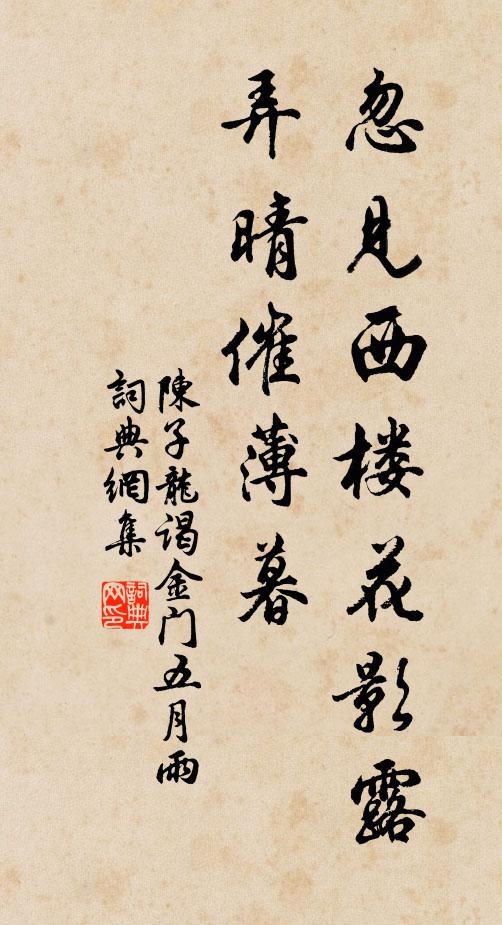 忽见西楼花影露
弄晴催薄暮
陳子龍谒金门五月雨
詞典網集
詞典網印